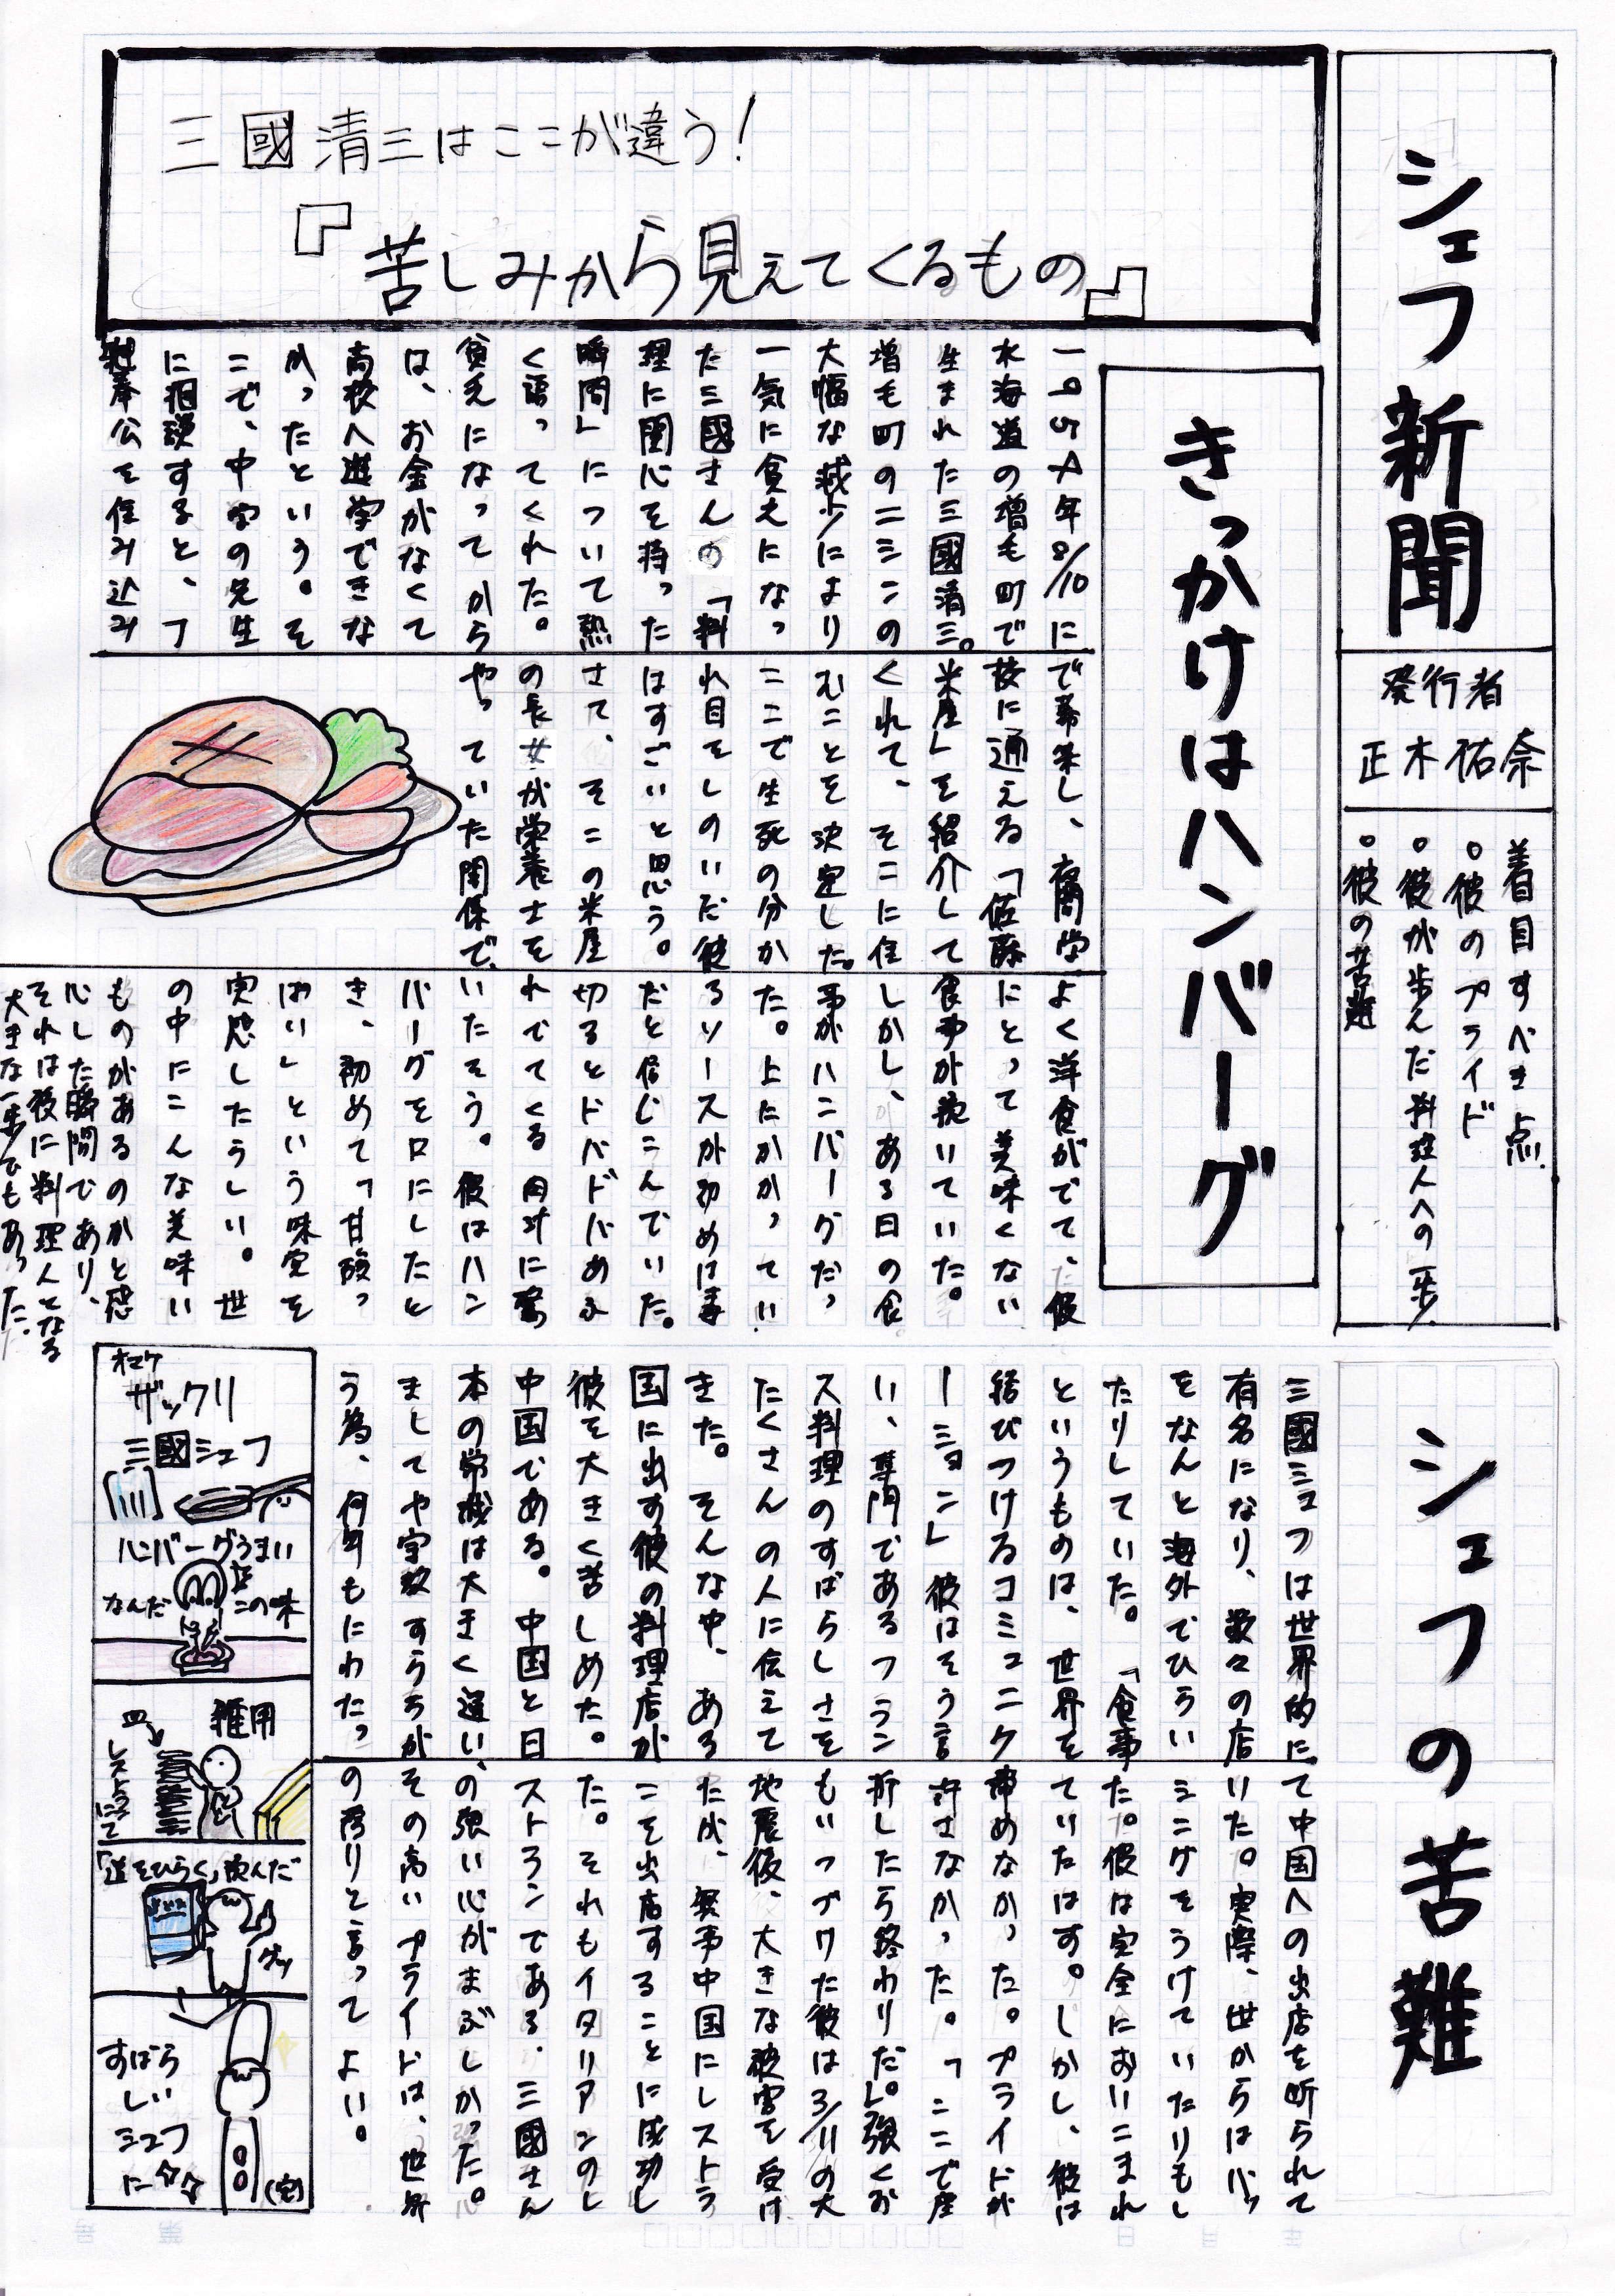 シェフ新聞
発行者
正木祐奈
着目すべき点
。彼のプライド
。彼が歩んだ料理人への一歩
。彼の苦難
三國清三はここが違う!
『苦しみから見えてくるもの』
きっかけはハンバーグ
一九五四年8/10に
北海道の増毛町で
生まれた三國清三。
増毛町のニシンの
大幅な減少により
一気に貧乏になっ
た三國さんの「料
理に関心を持った
瞬間」について熱
く語ってくれた。
貧乏になってから
は、お金がなくて
高校へ進学できな
かったという。そ
こで、中学の先生
に相談すると、丁
稚奉公を住み込み
で募集し、夜間学
校に通える「佐藤
米屋」を紹介して
くれて、そこに住
むことを決定した。
ここで生死の分か
れ目をしのいだ彼
はすごいと思う。
さて、そこの米屋
の長女が栄養士を
やっていた関係で、
よく洋食がでて、彼
にとって美味くない
食事が続いていた。
しかし、ある日の食
事がハンバーグだっ
た。上にかかってい
るソースが初めは毒
だと信じこんでいた。
切るとドバドバあふ
れでてくる肉汁に驚
いたそう。彼はハン
バーグを口にしたと
き、初めて「甘酸っ
ぱい」という味覚を
実感したらしい。世
の中にこんな美味い
ものがあるのかと感
心した瞬間であり、
それは彼に料理人となる
大きな一歩でもあった。
シェフの苦難
三國シェフは世界的に
有名になり、数々の店
をなんと海外でひらい
たりしていた。「食事
というものは、世界を
結びつけるコミュニケ
ーション」彼はそう言
い、専門であるフラン
ス料理のすばらしさを
たくさんの人に伝えて
きた。そんな中、ある
国に出す彼の料理店が
彼を大きく苦しめた。
中国である。中国と日
本の常識は大きく違い、
ましてや宗教すらちが
う為、何年もにわたっ
て中国への出店を断られて
いた。実際、世からはバッ
シングをうけていたりもし
た。彼は完全においこまれ
ていたはず。しかし、彼は
諦めなかった。プライドが
許さなかった。「ここで座
折したら終わりだ。」強くお
もいつづけた彼は3/11の大
地震後、大きな被害を受け
たが、無事中国にレストラ
ンを出店することに成功し
た。それもイタリアンのレ
ストランである。三國さん
の強い心がまぶしかった。
その高いプライドは、世界
の誇りと言ってよい。
オマケ
ザックリ
三國シェフ
ハンバーグうまい
なんだこの味
雑用
皿
「道をひらく」読んだ
グッ
すばら
しい
シェフ
に☆☆
(完)